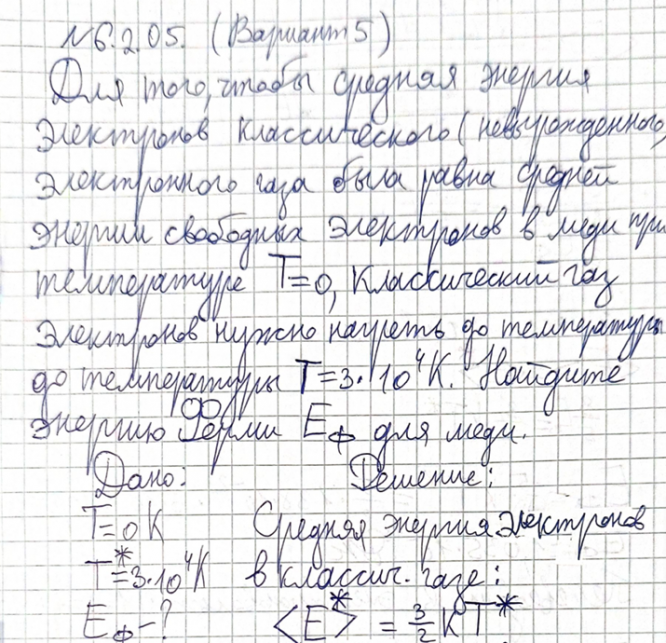 №6.2.05. (Вариант 5)
Для того, чтобы средняя энергия
электронов классического (невырожденного)
электронного газа была равна средней
энергии свободных электронов в меди при
температуре T=0, классический газ
электронов нужно нагреть до температуры
до температуры T=3·10⁴K. Найдите
энергию Ферми Eф для меди.
Дано: Решение:
T=0K Средняя энергия электронов
T*=3·10⁴K в классич. газе:
Eф-? <E*> = 3/2 KT*